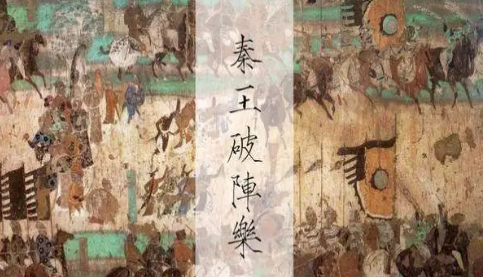 秦王破陣樂